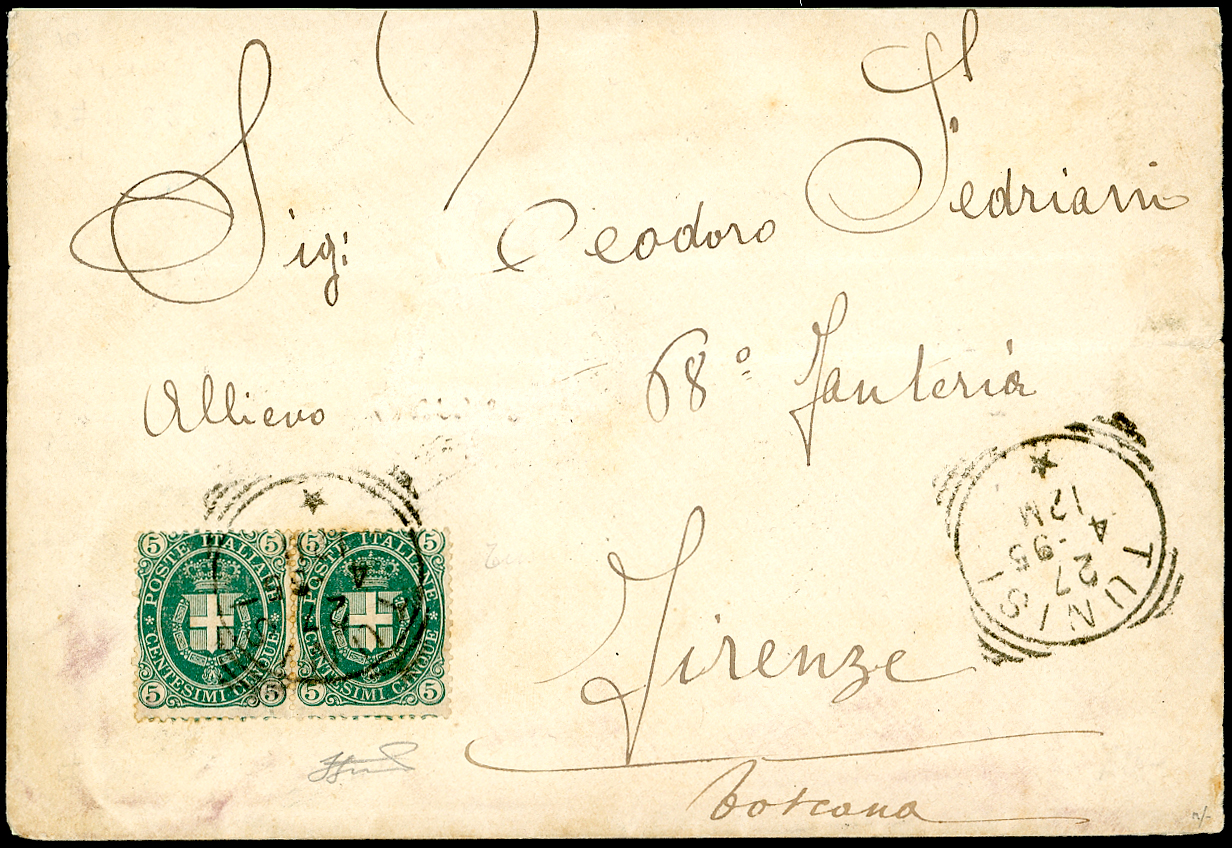 Sig: Teodoro Fedriani
Allievo 68° Fanteria
Firenze
Toscana
5 POSTE ITALIANE 5
5 CENTESIMI CINQUE 5
5 POSTE ITALIANE 5
5 CENTESIMI CINQUE 5
TUNISI
27
4 -95
12M